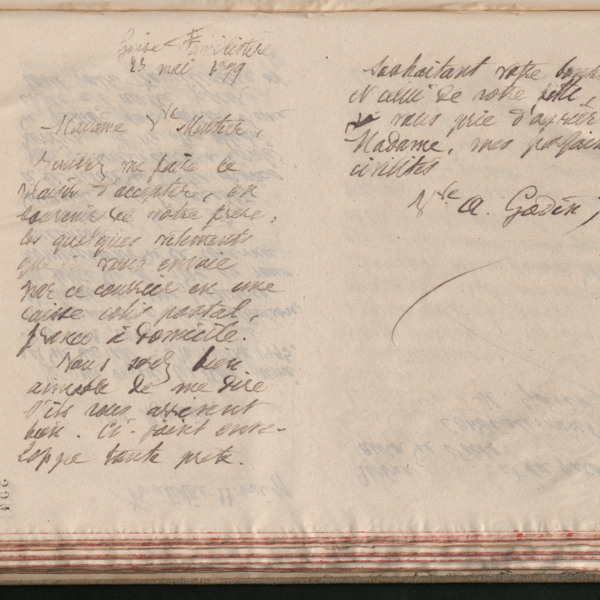 Guise Familistère
23 mai 1899
Madame Vve Moutier,
Veuillez me faire le
plaisir d'accepter, en
souvenir de votre frère,
les quelques vêtements
que je vous envoie
par ce courrier en une
caisse colis postal,
franco à domicile.
Vous serez bien
aimable de me dire
s'ils vous arrivent
bien. Ci-joint enve-
loppe toute prête.
Souhaitant votre
et celui de votre
je vous prie d'agréer
Madame, mes
civilités
Vve A. Godin